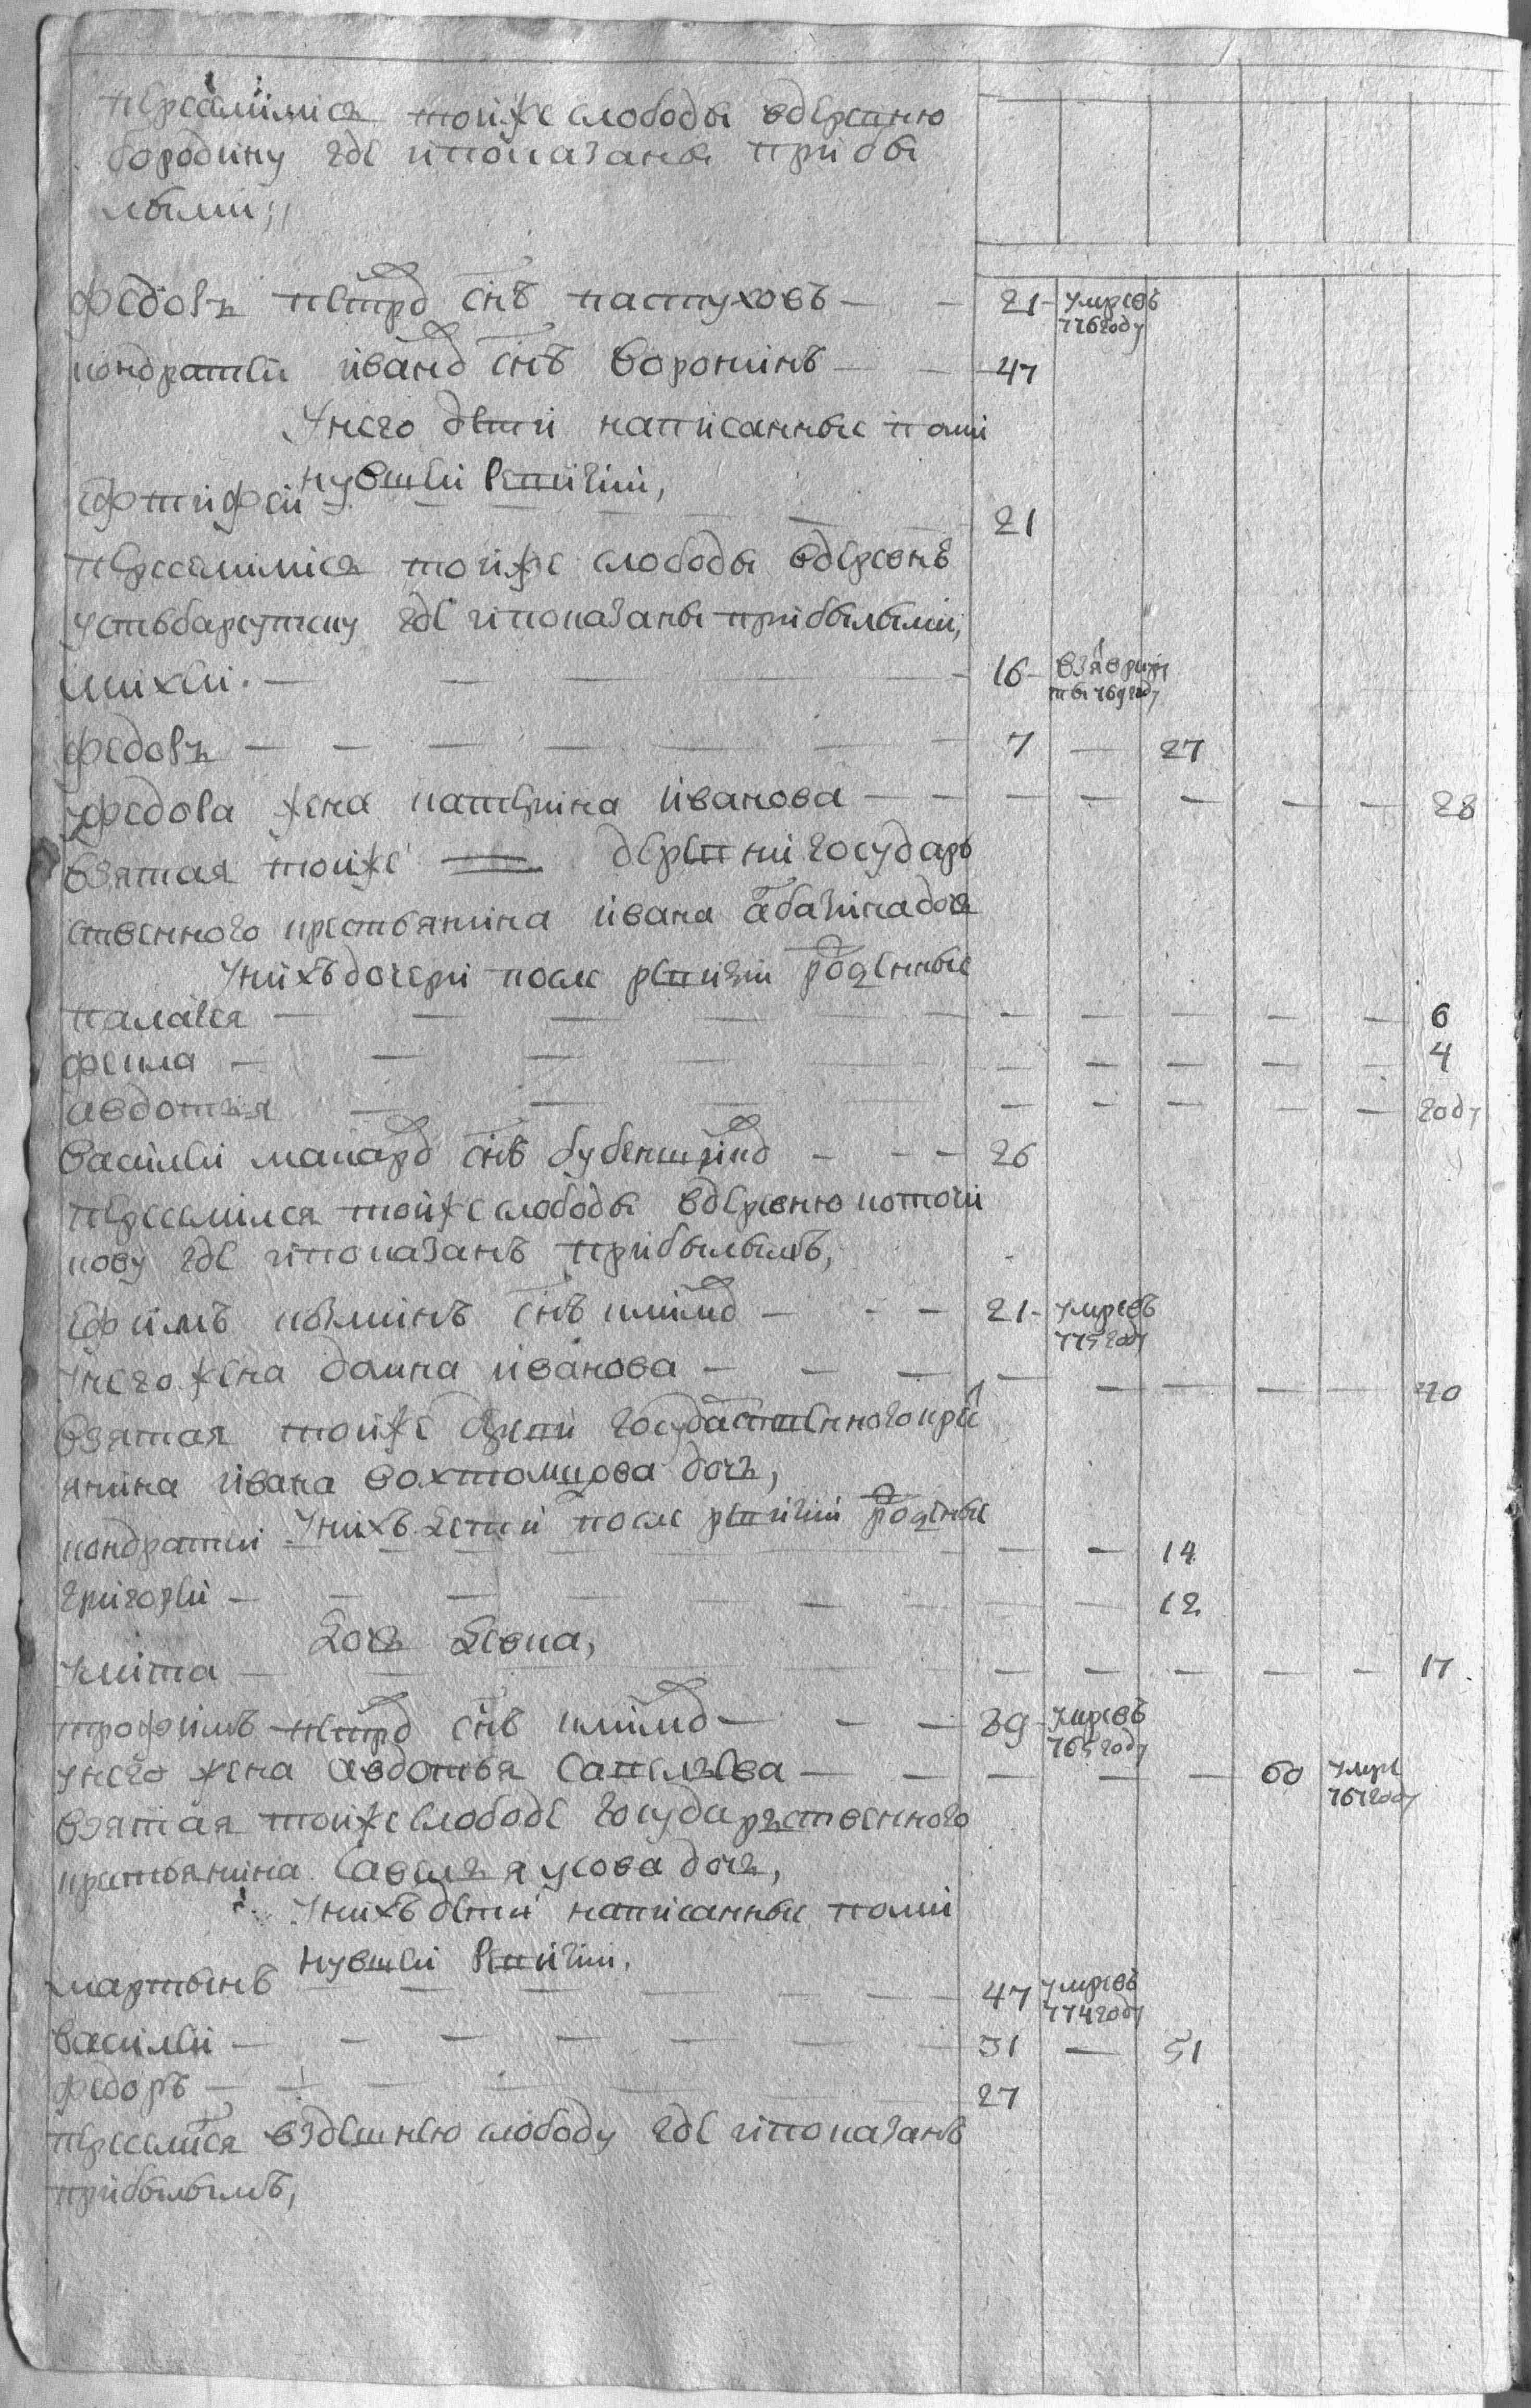 переселились тойже слободы вдеревню
бородину где ипоказаны прибы
лыми,,
федоръ петровъ снъ пастуховъ — — 21 — умревъ 776году
кондратеи ивановъ снъ воронинъ — — 47
Унего детеи написанные впоми
нувшеи ревизии,
ефтифеи — — — — 21
переселились тойже слободы вдеревнѣ
усть где ипоказаны прибылыми,
михеи — — — — 16 — взяврекруты 769году
федоръ — — — — 7 — 27
уфедора жена катерина иванова — — — — — — — 28
взятая тойже деревни государь
ственного крестьянина ивана дочь
Унихъ дочери после ревизии рожденные
палагея — — — — — — — — — 6
фекла — — — — — — — — — 4
авдотья — — — — — — — — — году
василеи макаровъ снъ — — — 26
переселился тойже слободы вдеревню
где ипоказанъ прибылымъ,
ефимъ козминъ снъ климовъ — — — 21 — умревъ 775году
Унего жена домна иванова — — — — — — — — 40
взятая тойже деревни государственного крестъ
янина ивана дочь,
Унихъ дети после ревизии рожденные
кондратеи — — — — — — — 14
григореи — — — — — — — 12
дочь девка,
улита — — — — — — — — — 17
трофимъ петровъ снъ климовъ — — — 89 — умревъ 765году
унего жена авдотья савельева — — — — — 60 умре 767году
взятая тойже слободе государственного
крестьянина савелья усова дочь,
Унихъ детеи написанные впоми
нувшеи ревизии,
мартынъ — — — — 47 умревъ 774году
василеи — — — — 31 — 51
федоръ — — — — 27
переселился вздешнею слободу где ипоказанъ
прибылымъ,